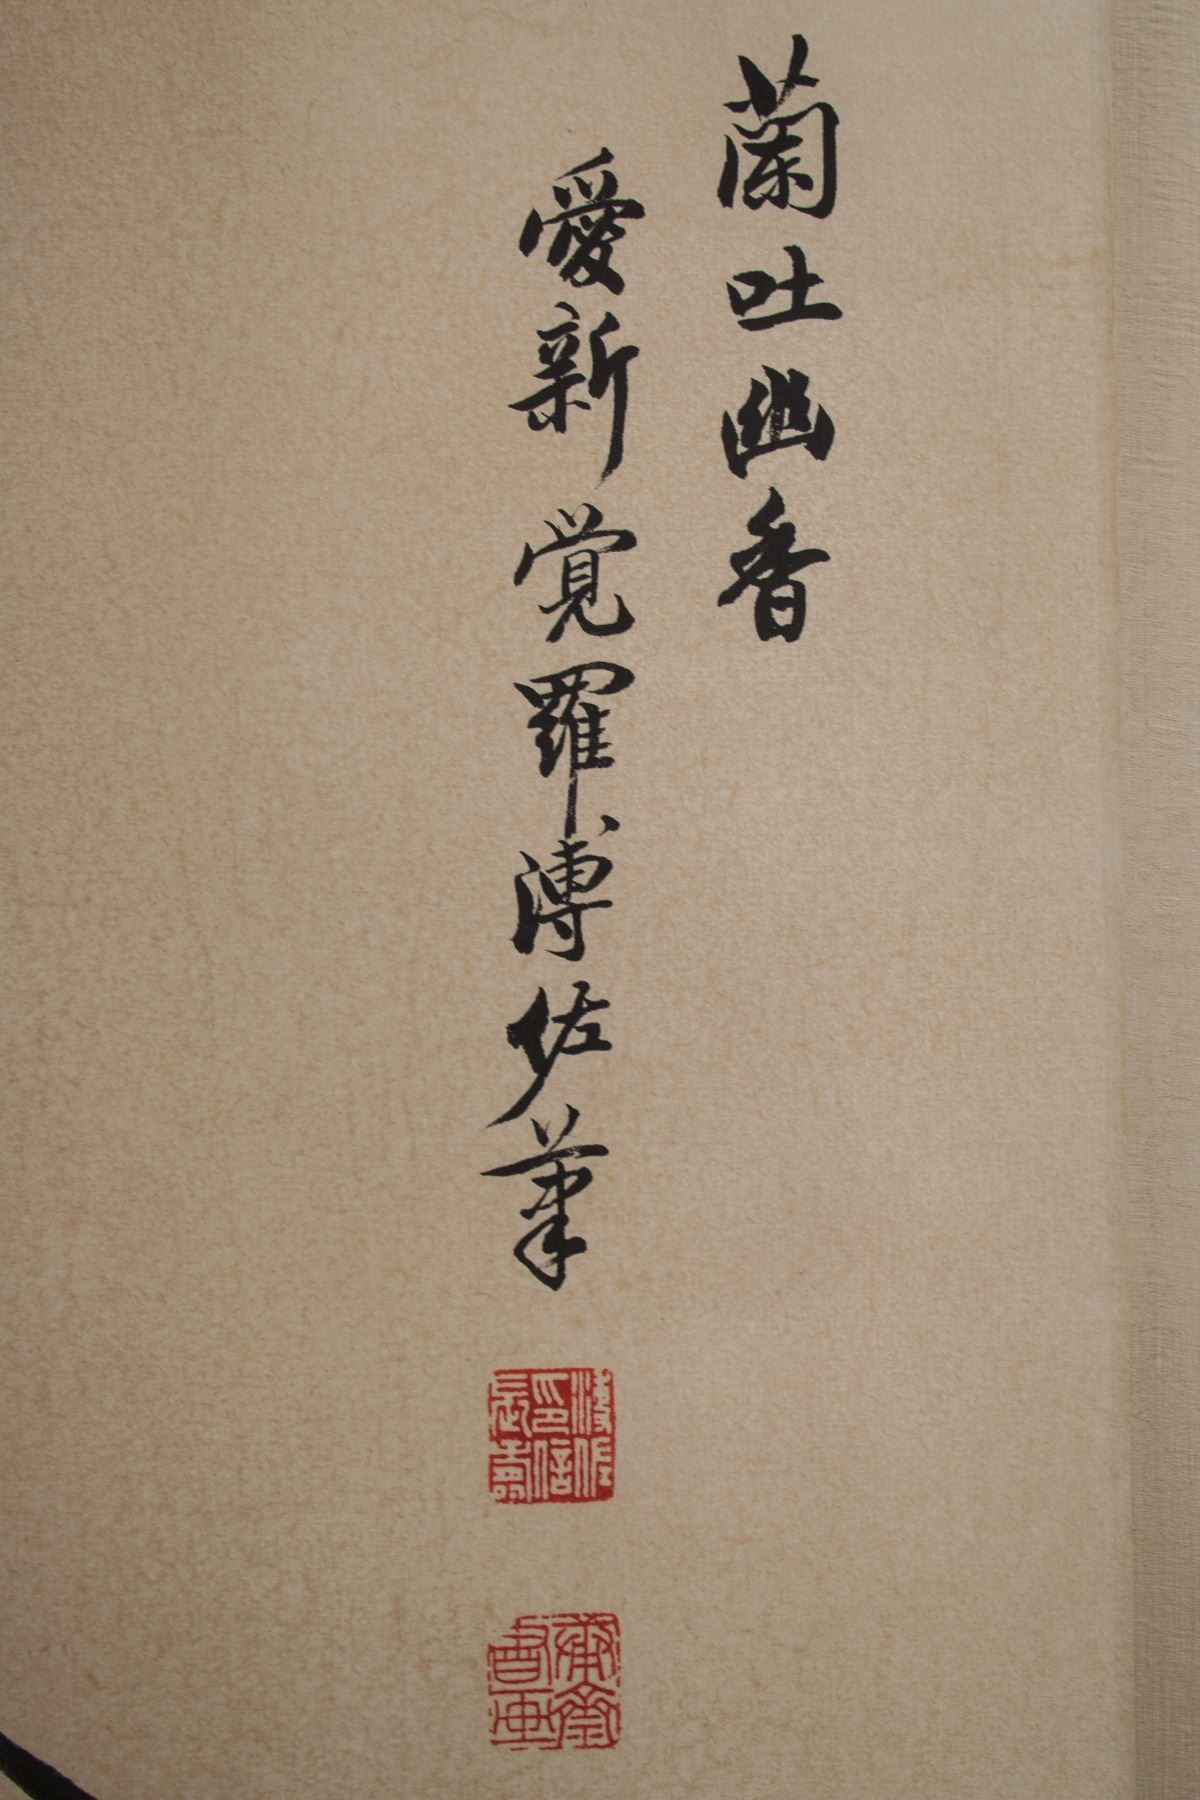 蘭吐幽香
愛新覚羅溥佐筆